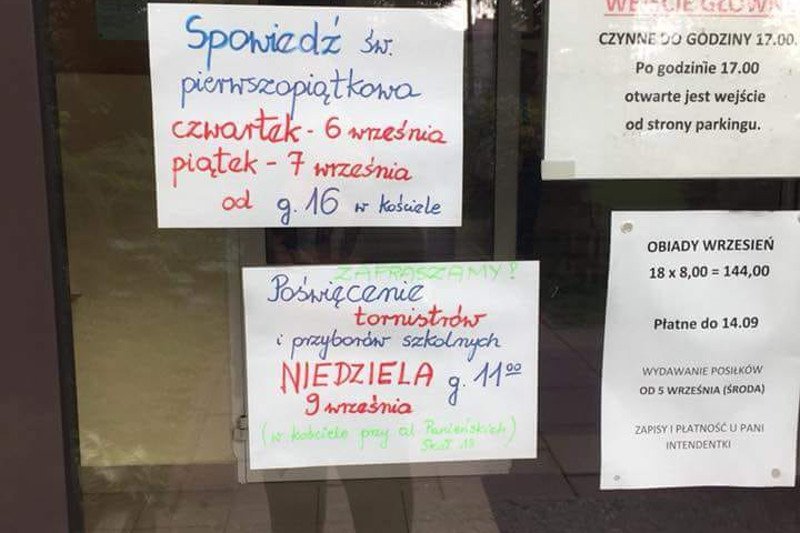 Spowiedź św.
pierwszopiątkowa
czwartek - 6 września
piątek - 7 września
od g. 16 w kościele
ZAPRASZAMY!
Poświęcenie
tornistrów
i przyborów szkolnych
NIEDZIELA g. 11⁰⁰
9 września
(w kościele przy ul. Panieńskich)
Skał 18
WEJŚCIE GŁÓWNE
CZYNNE DO GODZINY 17.00.
Po godzinie 17.00
otwarte jest wejście
od strony parkingu.
OBIADY WRZESIEŃ
18 x 8,00 = 144,00
Płatne do 14.09
WYDAWANIE POSIŁKÓW
OD 5 WRZEŚNIA (ŚRODA)
ZAPISY I PŁATNOŚĆ U PANI
INTENDENTKI